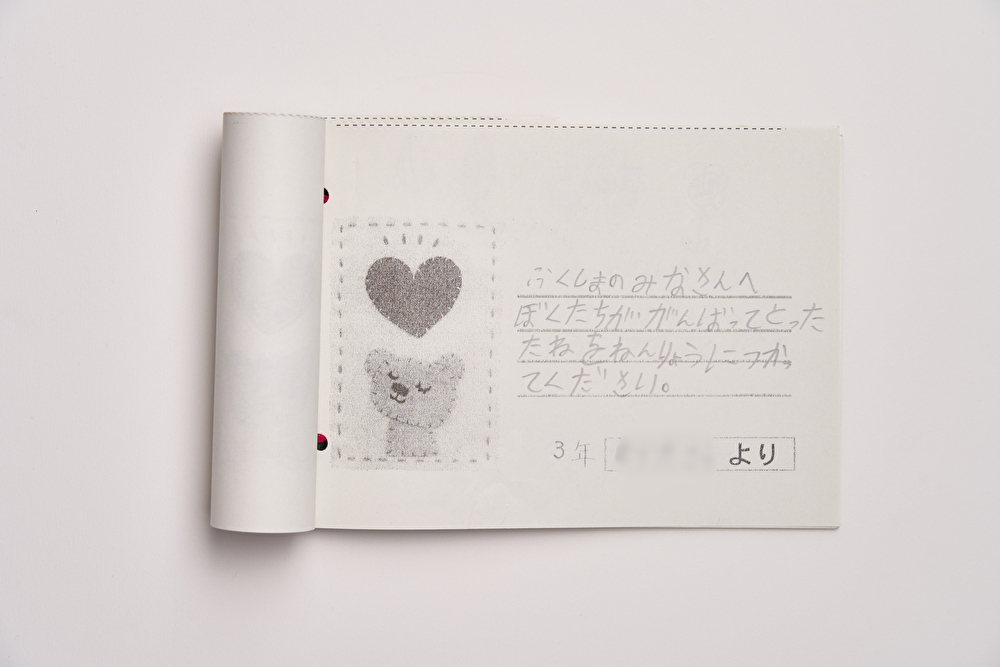 ふくしまのみなさんへ
ぼくたちががんばってとった
たねをねんりょうにつかっ
てください。
3年
より